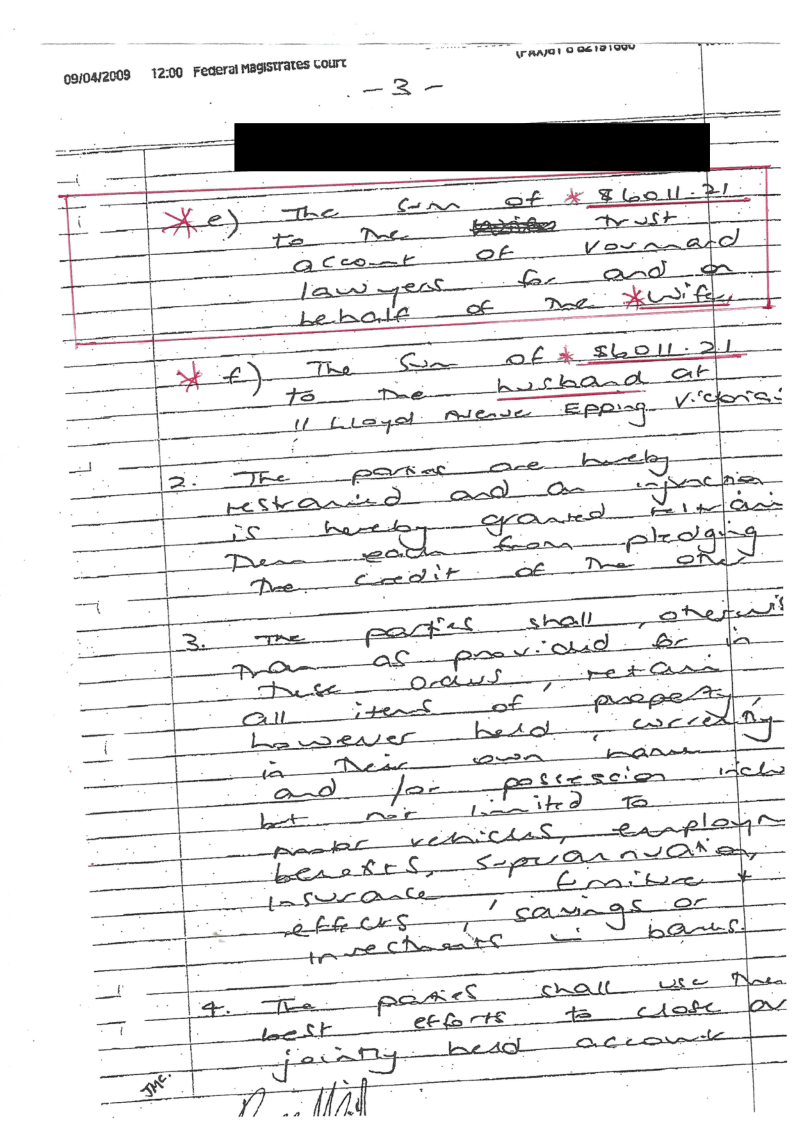 09/04/2009 12:00 Federal Magistrates Court
- 3 -
* e) The sum of * $6011.21
to the trust
account of
lawyers for and on
behalf of the * Wife,
* f) The sum of * $6011.21
to the husband at
11 Lloyd Avenue Epping Victoria
2. The parties are hereby
restrained and an injunction
is hereby granted restrain
them each from pledging
the credit of the other
3. The parties shall, otherwis
than as provided for in
these orders, retain
all items of property,
however held, currently
in their own names
and/or possession inclu
but not limited to
motor vehicles, employm
benefits, superannuation,
insurance, furniture +
effects, savings or
investments in banks.
4. The parties shall use their
best efforts to close
jointly held account
JMC.